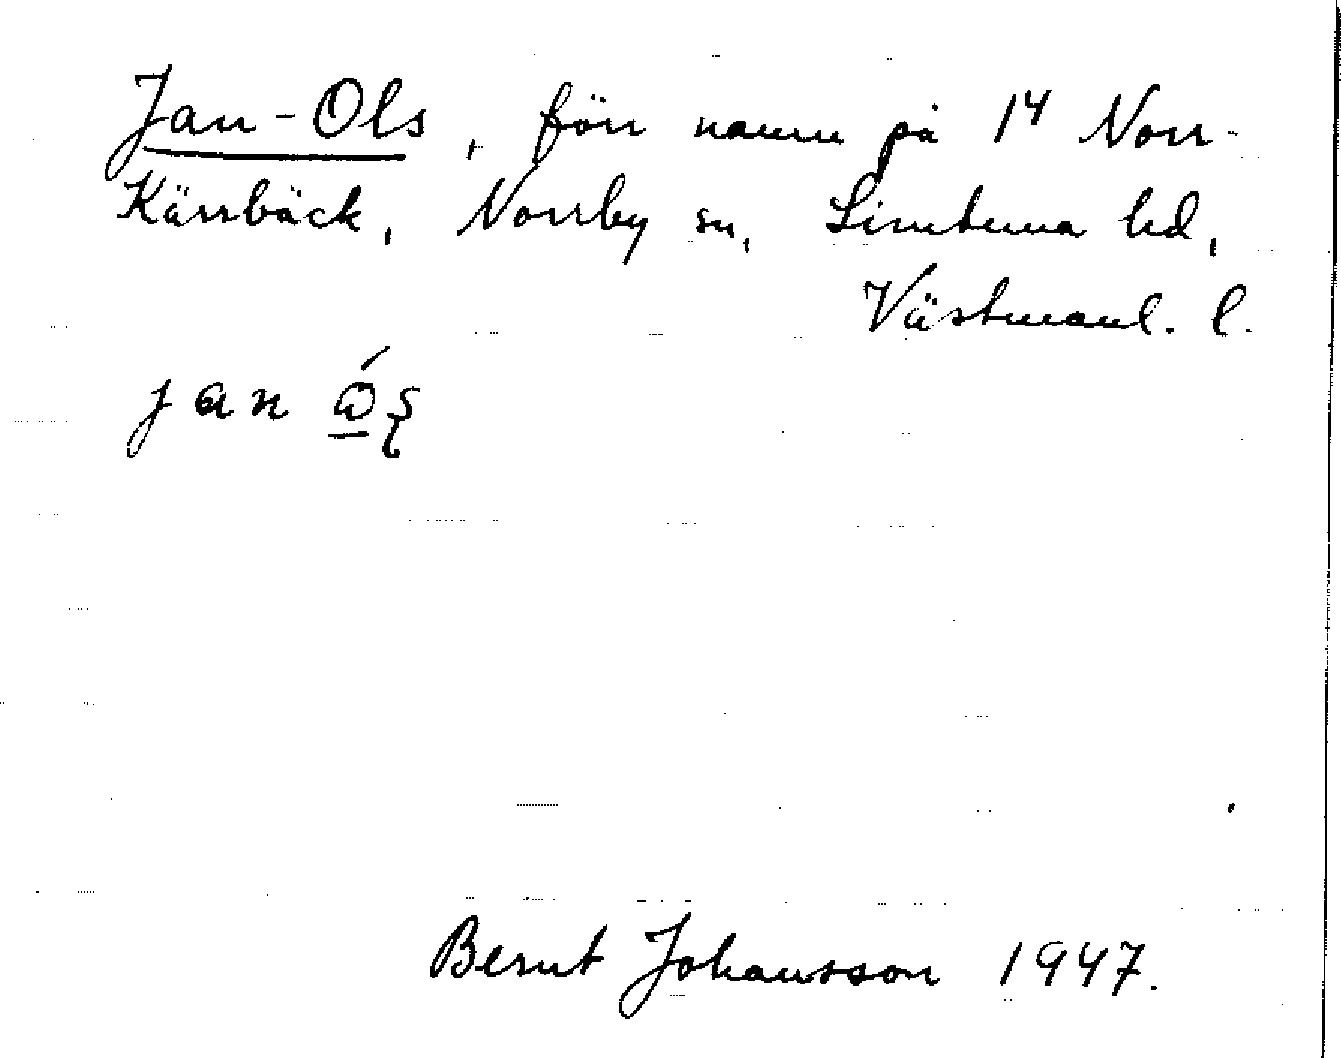 Jan-Ols, förr namn på 1⁴ Norr-
Kärrbäck, Norrby sn, Simtuna hd,
Västmanl. l.
jan
Bernt Johansson 1947.